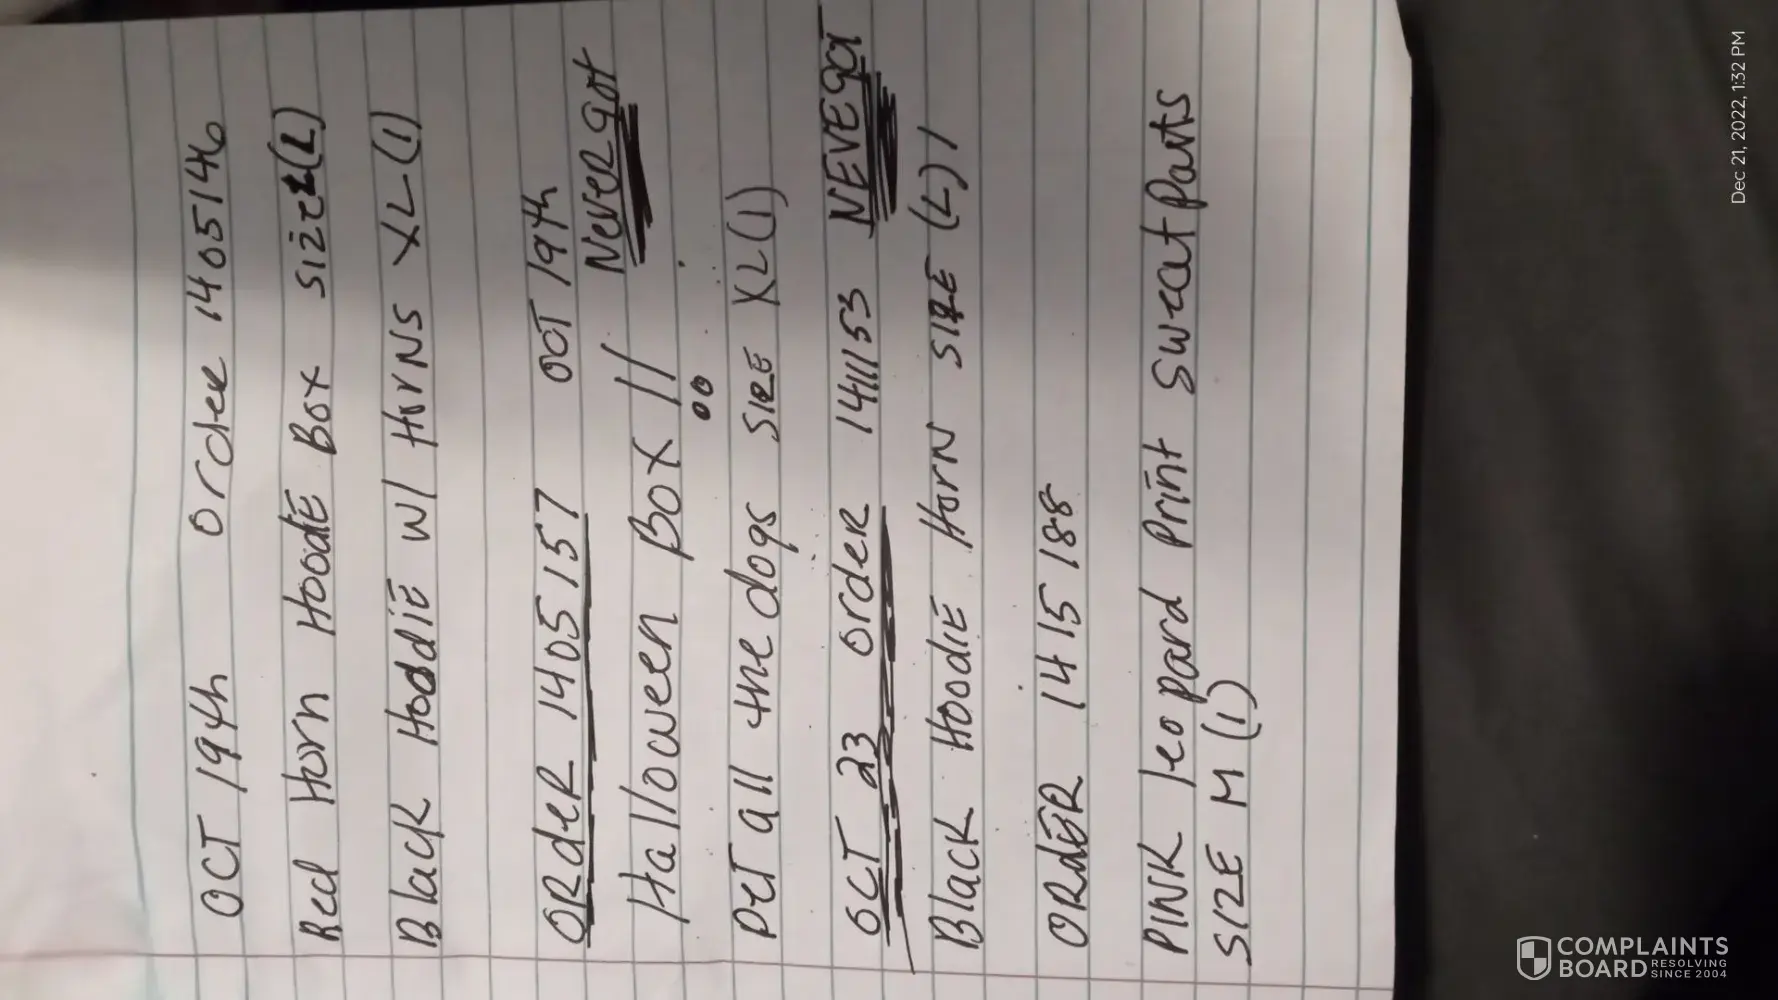 OCT 19th order 1405146
Red Horn Hoodie Box size (L)
Black Hoddie w/ Horns XL(1)
ORdeR 1405157 OCT 19th
Never got
Halloween Box 11
Pet all the dogs SIZE XL(1)
OCT 23 order 1411153 NEVEgot
Black Hoodie Horn SIZE (L) 1
ORdER 1415188
PINK leopard print sweatpants
SIZE M (1)
Dec 21, 2022, 1:32 PM
COMPLAINTS
BOARD RESOLVING
SINCE 2004